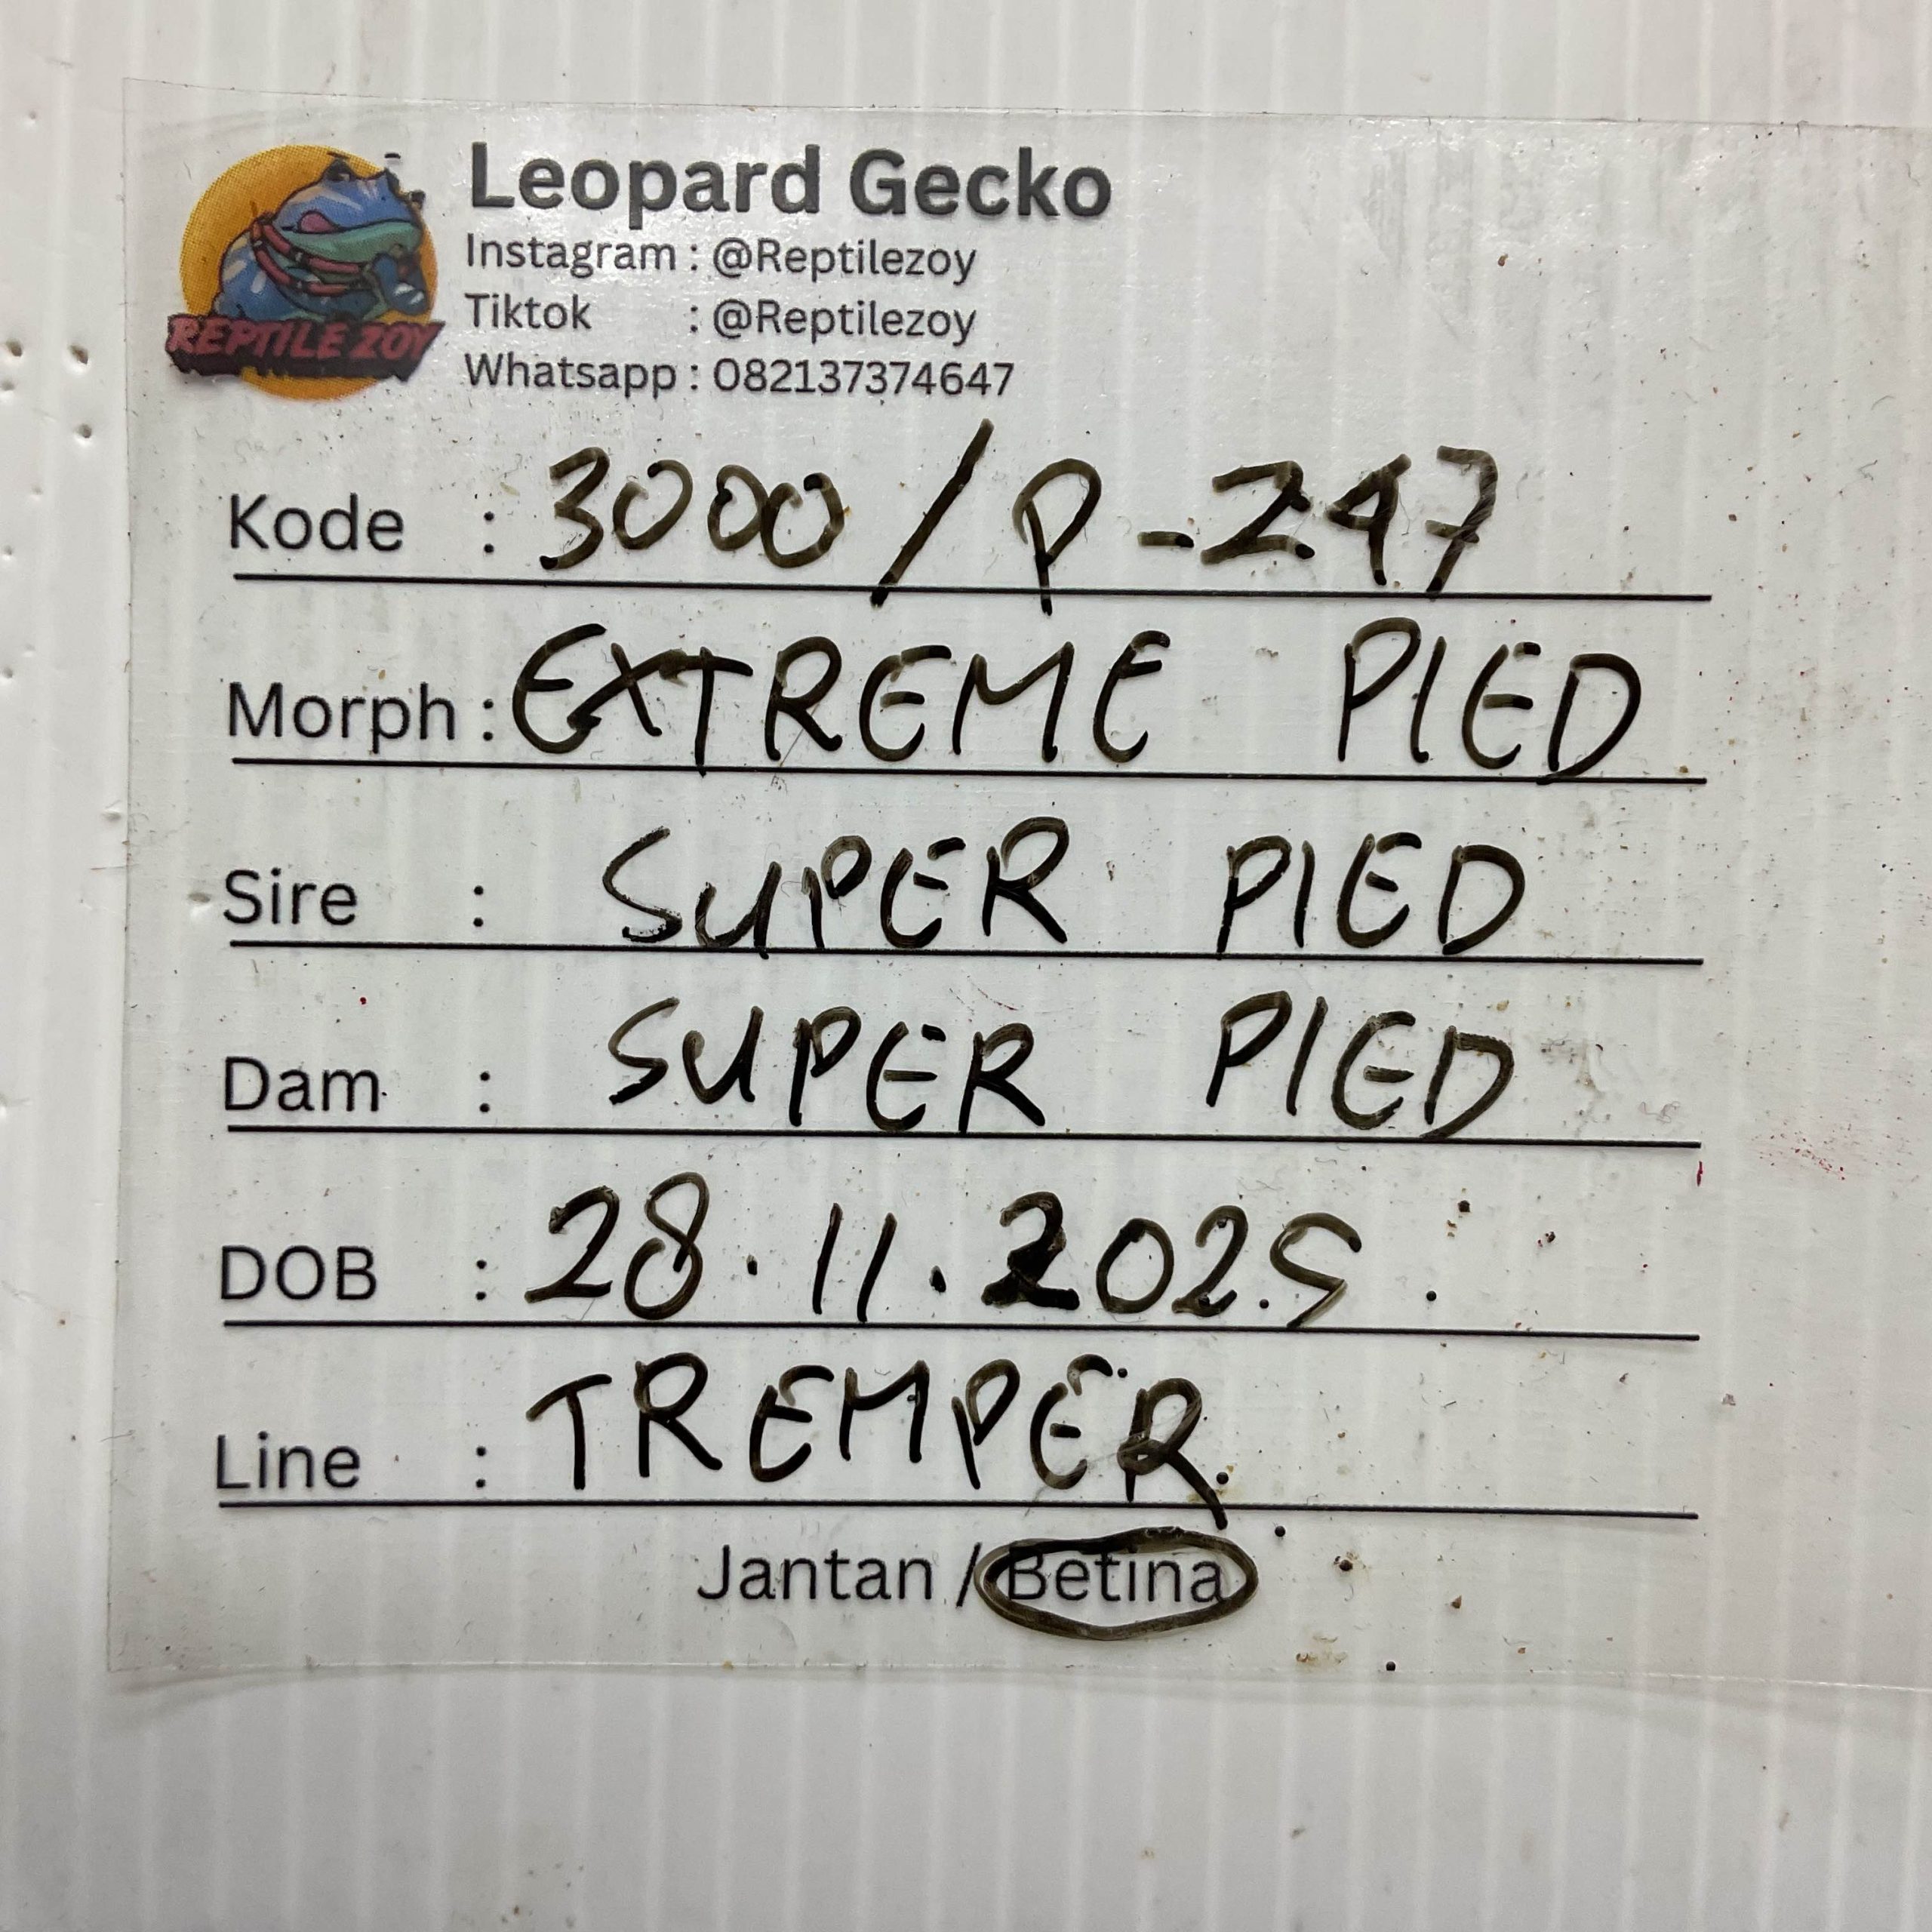 REPTILE ZOY
Leopard Gecko
Instagram : @Reptilezoy
Tiktok : @Reptilezoy
Whatsapp : 082137374647
Kode : 3000 / P - 247
Morph : EXTREME PIED
Sire : SUPER PIED
Dam : SUPER PIED
DOB : 28.11.2025
Line : TREMPER
Jantan / Betina